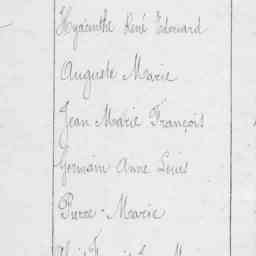 Hyacinthe René Edouard
Auguste Marie
Jean Marie François
Germain Anne Louis
Pierre-Marie